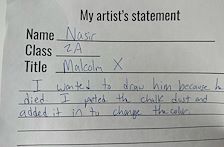 My artist's statement
Name Nasir
Class 2A
Title Malcolm X
I wanted to draw him because h
died I the chalk dust and
added it in to change the color.